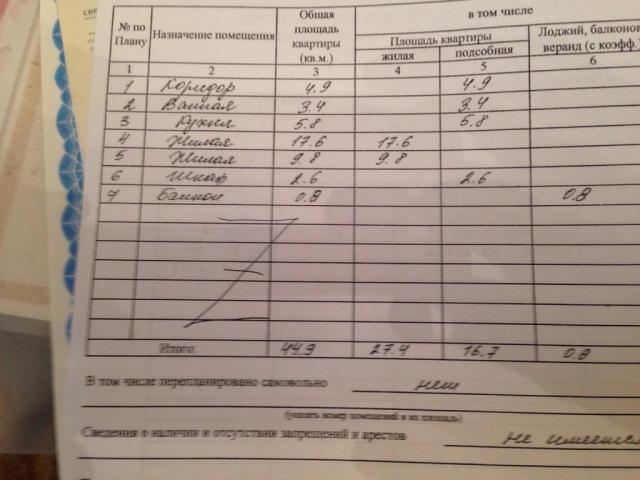 № по Плану Назначение помещения Общая площадь квартиры (кв.м.) в том числе
Площадь квартиры Лоджий, балконов, веранд (с коэфф.)
жилая подсобная
1 2 3 4 5 6
1 Коридор 4.9 4.9
2 Ванная 3.4 3.4
3 Кухня 5.8 5.8
4 Жилая 17.6 17.6
5 Жилая 9.8 9.8
6 Шкаф 2.6 2.6
7 Балкон 0.8 0.8
Итого: 44.9 27.4 16.7 0.8
В том числе перепланировано самовольно нет
(указать номер помещений и их площадь)
Сведения о наличии и отсутствии запрещений и арестов не имеется